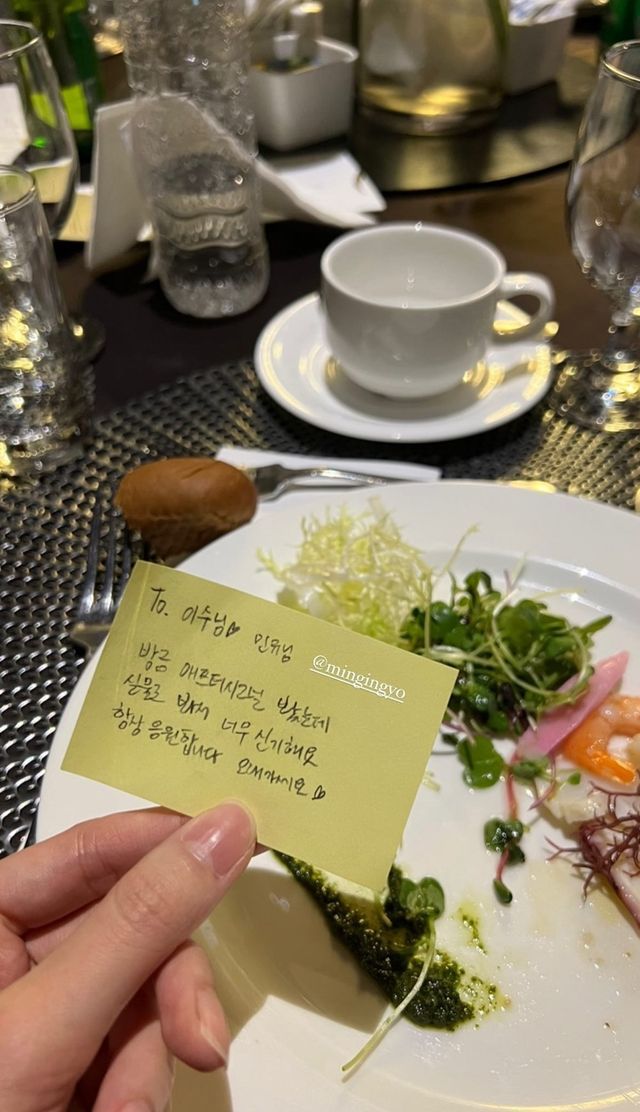 To. 이수님♡ 민규님
@mingingyo
방금 애프터시그널 봤는데
실물로 봐서 너무 신기해요
항상 응원합니다 오래가세요♡